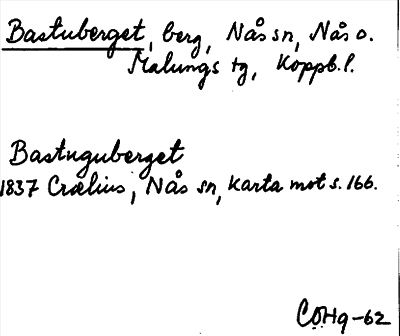 Bastuberget, berg, Nås sn, Nås o.
Malungs tg, Koppb.l.
Bastuguberget
1837 Crælius, Nås sn, karta mot s. 166.
COHq-62